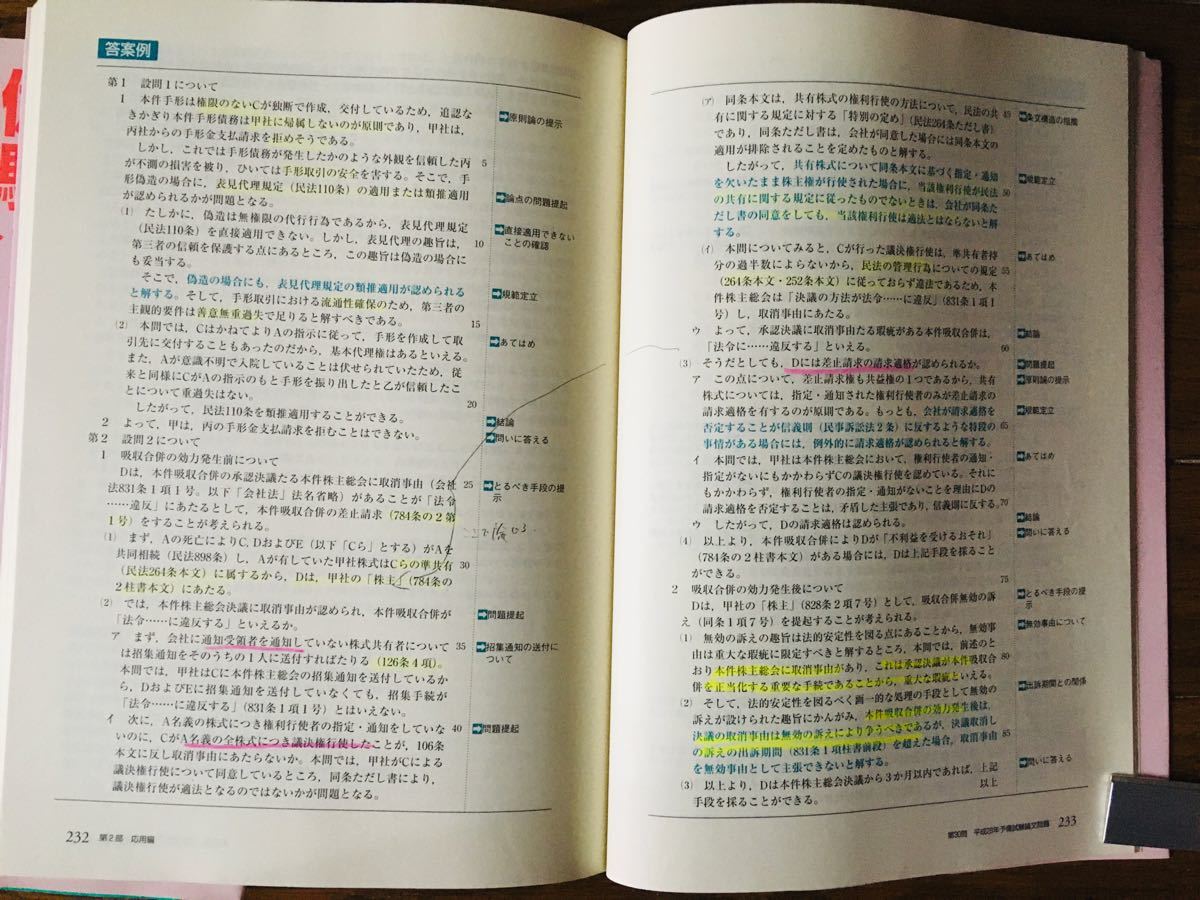 答案例
第1 設問1について
1 本件手形は権限のないCが独断で作成,交付しているため,追認な
きかぎり本件手形債務は甲社に帰属しないのが原則であり,甲社は,
丙社からの手形金支払請求を拒めそうである。
しかし,これでは手形債務が発生したかのような外観を信頼した丙 5
が不測の損害を被り,ひいては手形取引の安全を害する。そこで,手
形偽造の場合に,表見代理規定(民法110条)の適用または類推適用
が認められるかが問題となる。
⑴ たしかに,偽造は無権限の代行行為であるから,表見代理規定
(民法110条)を直接適用できない。しかし,表見代理の趣旨は, 10
第三者の信頼を保護する点にあるところ,この趣旨は偽造の場合に
も妥当する。
そこで,偽造の場合にも,表見代理規定の類推適用が認められる
と解する。そして,手形取引における流通性確保のため,第三者の
主観的要件は善意無重過失で足りると解すべきである。 15
⑵ 本問では,CはかねてよりAの指示に従って,手形を作成して取
引先に交付することもあったのだから,基本代理権はあるといえる。
また,Aが意識不明で入院していることは伏せられていたため,従
来と同様にCがAの指示のもと手形を振り出したと乙が信頼したこ
とについて重過失はない。 20
したがって,民法110条を類推適用することができる。
2 よって,甲は,丙の手形金支払請求を拒むことはできない。
第2 設問2について
1 吸収合併の効力発生前について
Dは,本件吸収合併の承認決議たる本件株主総会に取消事由(会社 25
法831条1項1号。以下「会社法」法名省略)があることが「法令
……違反」にあたるとして,本件吸収合併の差止請求(784条の2第
1号)をすることが考えられる。
⑴ まず,Aの死亡によりC,DおよびE(以下「Cら」とする)がAを
共同相続(民法898条)し,Aが有していた甲社株式はCらの準共有 30
(民法264条本文)に属するから,Dは,甲社の「株主」(784条の
2柱書本文)にあたる。
⑵ では,本件株主総会決議に取消事由が認められ,本件吸収合併が
「法令……に違反する」といえるか。
ア まず,会社に通知受領者を通知していない株式共有者について 35
は招集通知をそのうちの1人に送付すればたりる(126条4項)。
本問では,甲社はCに本件株主総会の招集通知を送付しているか
ら,DおよびEに招集通知を送付していなくても,招集手続が
「法令……に違反する」(831条1項1号)とはいえない。
イ 次に,A名義の株式につき権利行使者の指定・通知をしていな 40
いのに,CがA名義の全株式につき議決権行使したことが,106条
本文に反し取消事由にあたらないか。本問では,甲社がCによる
議決権行使について同意しているところ,同条ただし書により,
議決権行使が適法となるのではないかが問題となる。
原則論の提示
論点の問題提起
直接適用できない
ことの確認
規範定立
あてはめ
結論
問いに答える
とるべき手段の提
示
問題提起
招集通知の送付に
ついて
問題提起
232 第2部 応用編
(ア) 同条本文は,共有株式の権利行使の方法について,民法の共 45
有に関する規定に対する「特別の定め」(民法264条ただし書)
であり,同条ただし書は,会社が同意した場合には同条本文の
適用が排除されることを定めたものと解する。
したがって,共有株式について同条本文に基づく指定・通知
を欠いたまま株主権が行使された場合に,当該権利行使が民法 50
の共有に関する規定に従ったものでないときは,会社が同条た
だし書の同意をしても,当該権利行使は適法とはならないと解
する。
(イ) 本問についてみると,Cが行った議決権行使は,準共有者持
分の過半数によらないから,民法の管理行為についての規定 55
(264条本文・252条本文)に従っておらず違法であるため,本
件株主総会は「決議の方法が法令……に違反」(831条1項1
号)し,取消事由にあたる。
ウ よって,承認決議に取消事由たる瑕疵がある本件吸収合併は,
「法令に……違反する」といえる。 60
⑶ そうだとしても,Dには差止請求の請求適格が認められるか。
ア この点について,差止請求権も共益権の1つであるから,共有
株式については,指定・通知された権利行使者のみが差止請求の
請求適格を有するのが原則である。もっとも,会社が請求適格を
否定することが信義則(民事訴訟法2条)に反するような特段の 65
事情がある場合には,例外的に請求適格が認められると解する。
イ 本問では,甲社は本件株主総会において,権利行使者の通知・
指定がないにもかかわらずCの議決権行使を認めている。それに
もかかわらず,権利行使者の指定・通知がないことを理由にDの
請求適格を否定することは,矛盾した主張であり,信義則に反する。 70
ウ したがって,Dの請求適格は認められる。
⑷ 以上より,本件吸収合併によりDが「不利益を受けるおそれ」
(784条の2柱書本文)がある場合には,Dは上記手段を採ること
ができる。
75
2 吸収合併の効力発生後について
Dは,甲社の「株主」(828条2項7号)として,吸収合併無効の訴
え(同条1項7号)を提起することが考えられる。
⑴ 無効の訴えの趣旨は法的安定性を図る点にあることから,無効事
由は重大な瑕疵に限定すべきと解するところ,本問では,前述のと
おり本件株主総会に取消事由があり,これは承認決議が本件吸収合 80
併を正当化する重要な手続であることから,重大な瑕疵といえる。
⑵ そして,法的安定性を図るべく画一的な処理の手段として無効の
訴えが設けられた趣旨にかんがみ,本件吸収合併の効力発生後は,
決議の取消事由は無効の訴えにより争うべきであるが,決議取消し
の訴えの出訴期間(831条1項柱書前段)を超えた場合,取消事由 85
を無効事由として主張できないと解する。
⑶ 以上より,Dは本件株主総会決議から3か月以内であれば,上記
手段を採ることができる。
以上
条文構造の指摘
規範定立
あてはめ
結論
問題提起
原則論の提示
規範定立
あてはめ
結論
問いに答える
とるべき手段の提
示
無効事由について
出訴期間との関係
問いに答える
第30問 平成28年予備試験論文問題 233